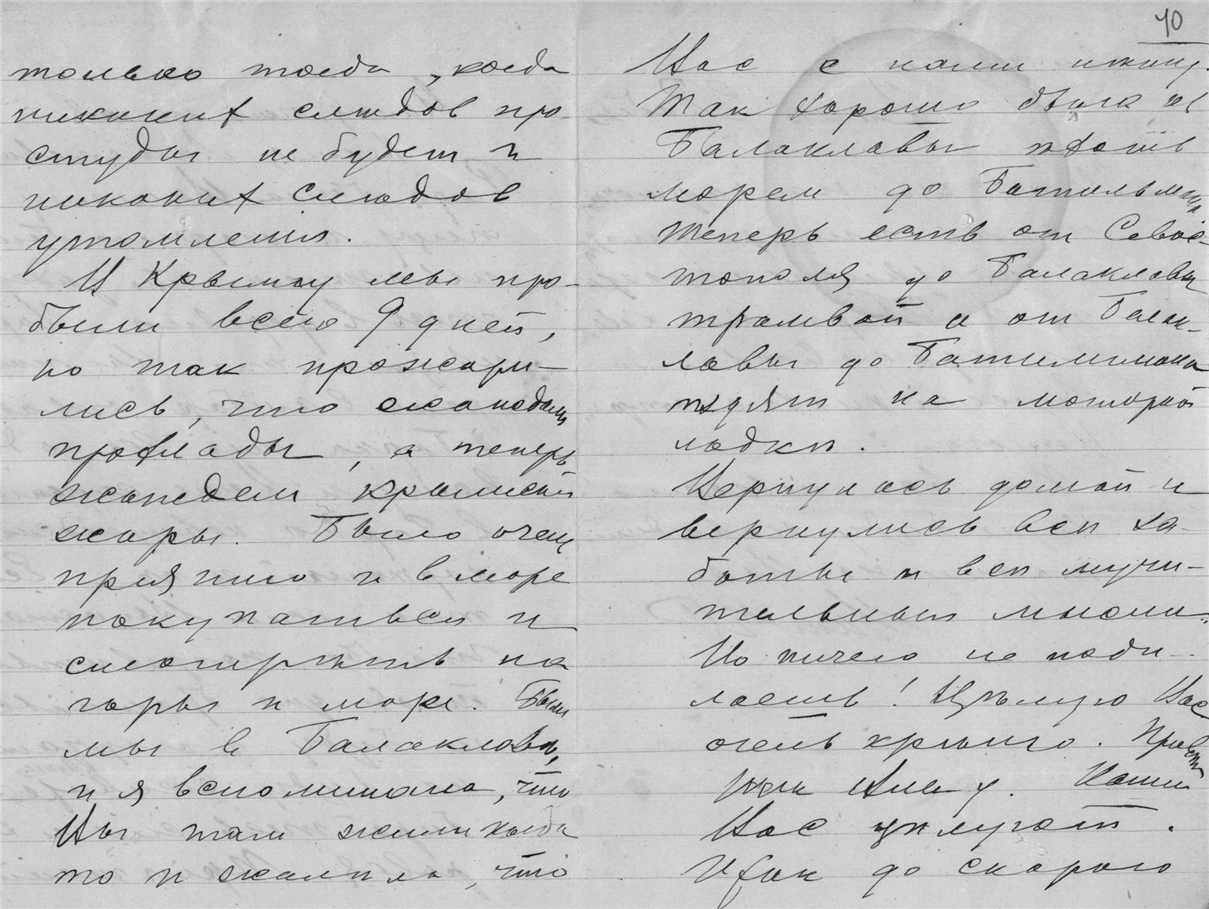 только тогда, когда
никаких следов про-
студы не будет и
никаких следов
утомления.
В Крыму мы про-
были всего 9 дней,
но так прожари-
лись, что жаждали
прохлады, а теперь
жаждем крымской
жары. Было очень
приятно и в море
покупаться и
смотреть на
горы и море. Были
мы в Балаклаве,
и я вспоминала, что
Вы там жили когда
то и жалела, что
40
Вас с нами не было.
Так хорошо было из
Балаклавы ехать
морем до Батилимана
Теперь есть от Севас-
тополя до Балаклавы
трамвай а от Балак-
лавы до Батилимана
ездят на моторной
лодке.
Вернулась домой и
вернулись все за-
боты и все мучи-
тельные мысли.
Но ничего не поде-
лаешь! Целую Вас
очень крепко. Привет
Наши
Вас целуют.
Итак до скорого